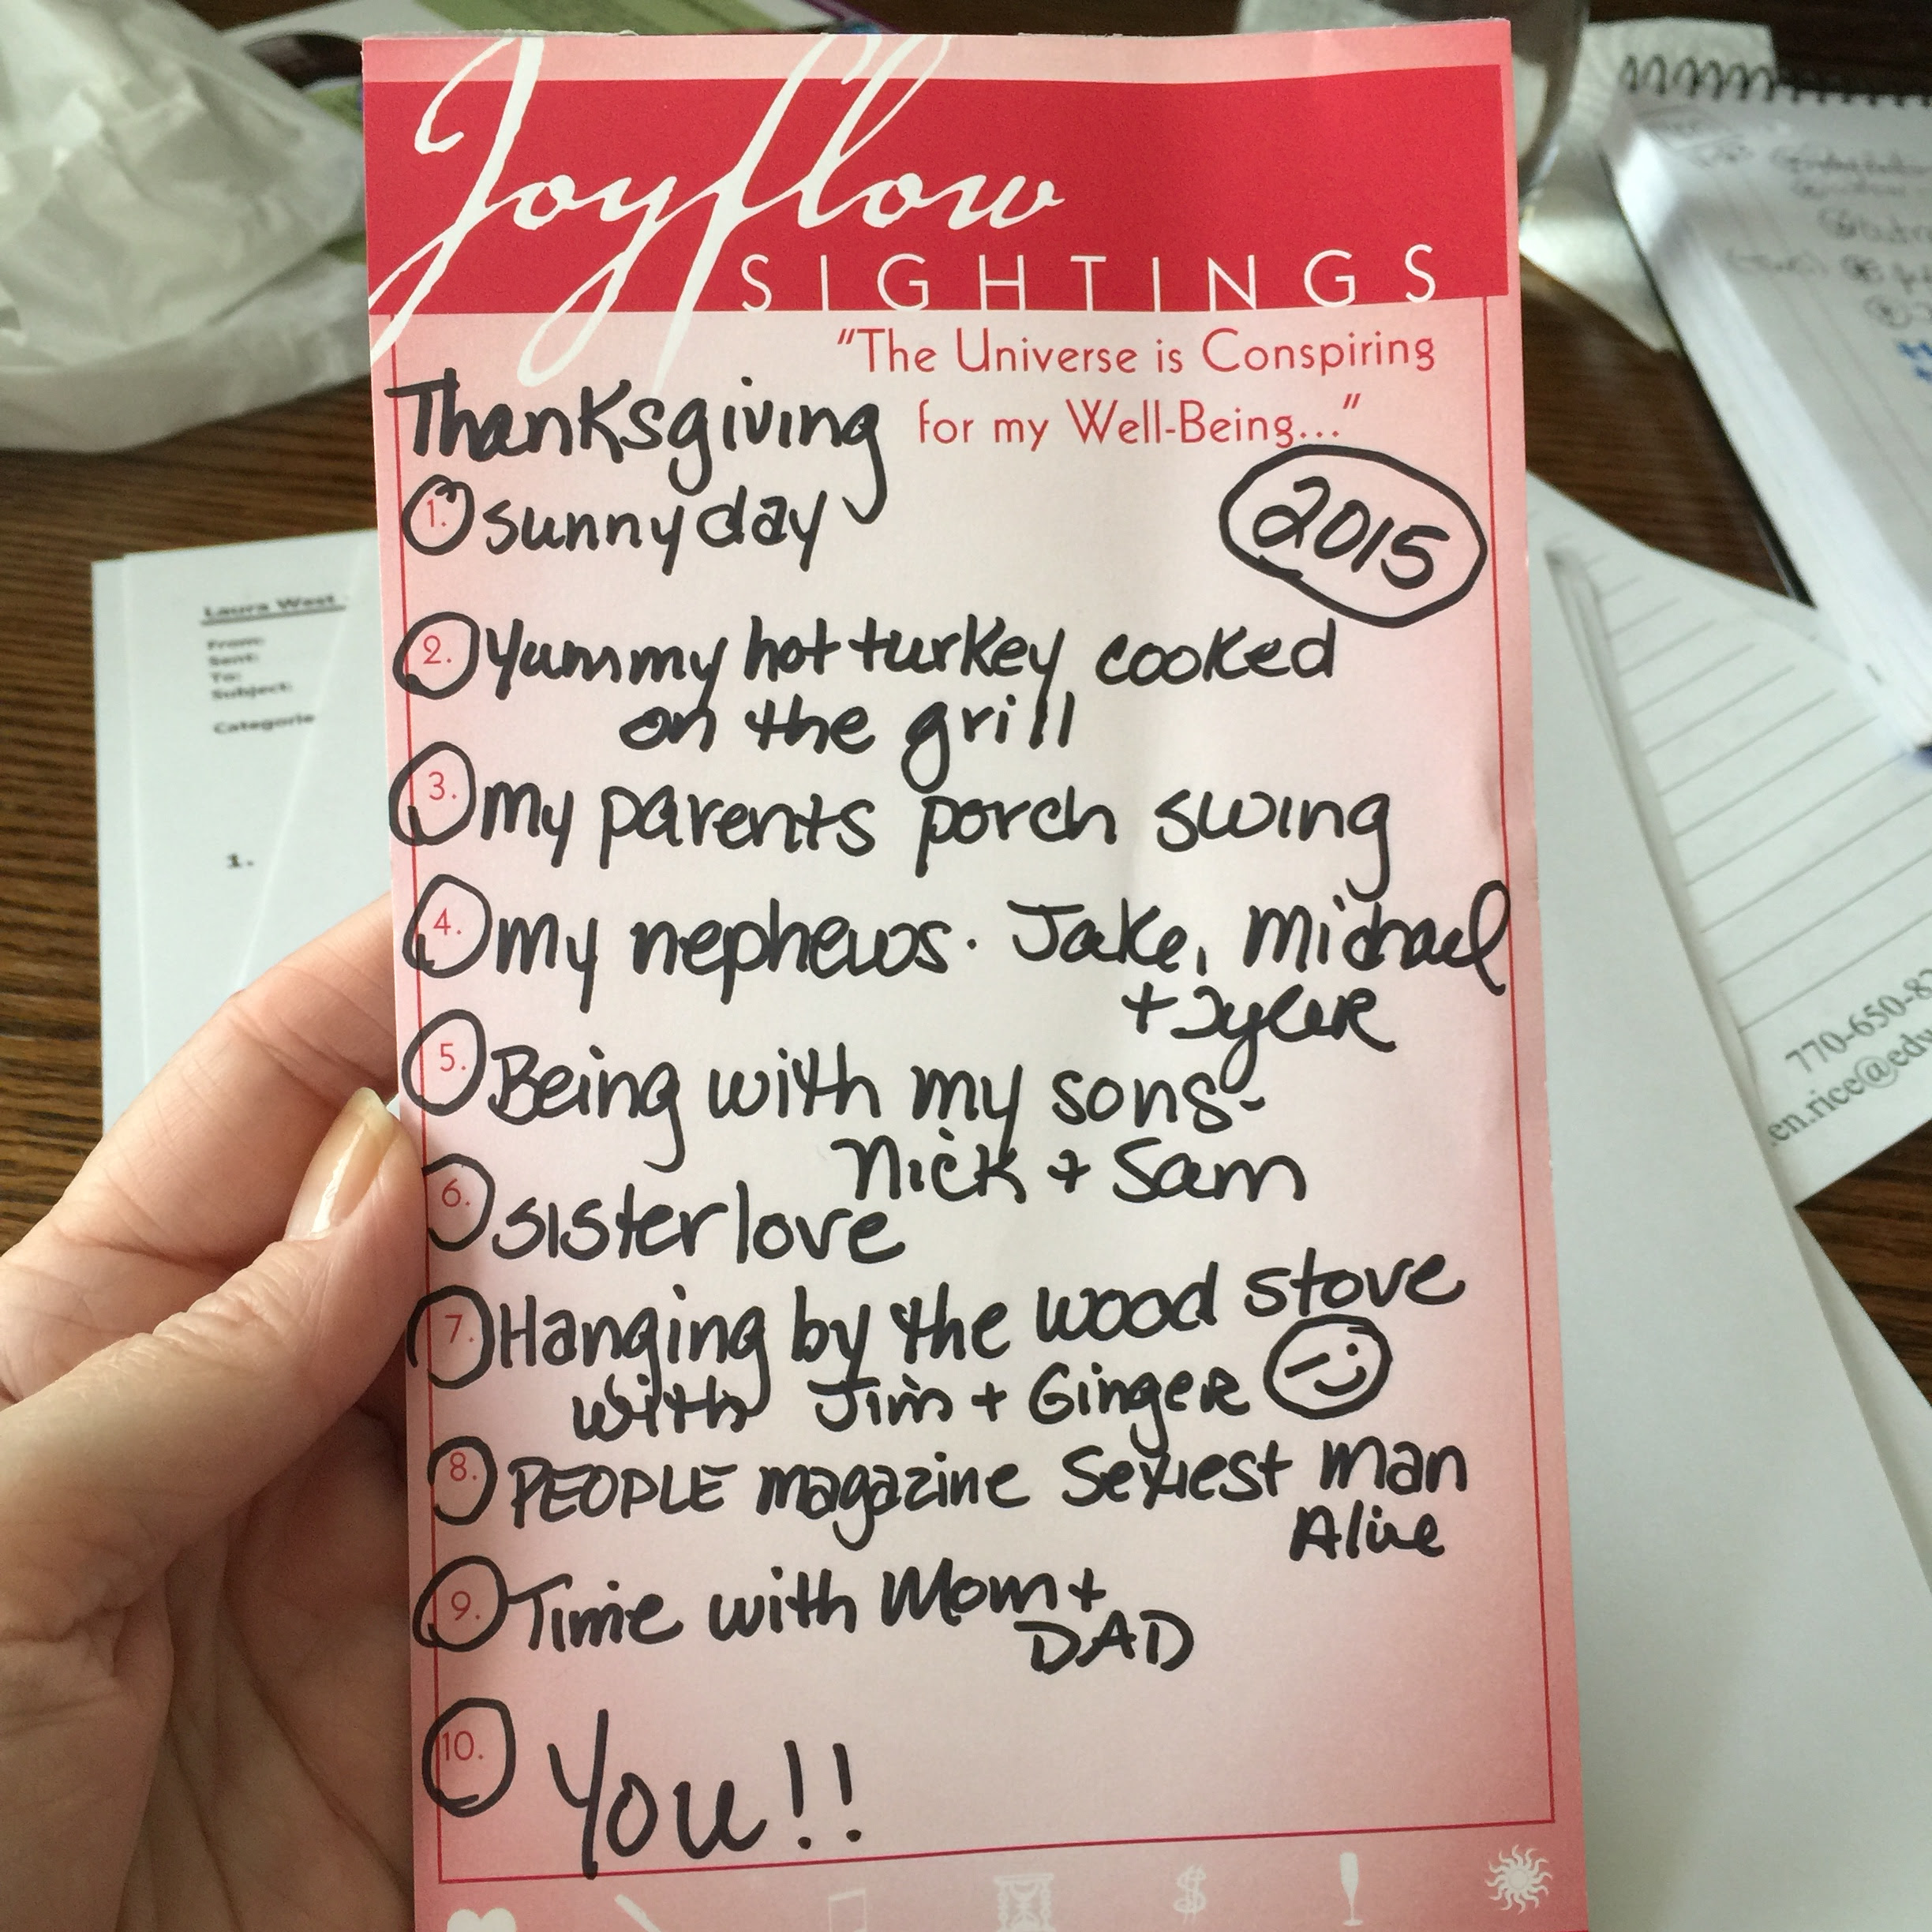 Joyflow
SIGHTINGS
"The Universe is Conspiring
for my Well-Being..."
Thanksgiving
2015
1. sunny day
2. Yummy hot turkey cooked
on the grill
3. my parents porch swing
4. my nephews. Jake, Michael
+ Tyler
5. Being with my sons-
Nick + Sam
6. sister love
7. Hanging by the wood stove
with Jim + Ginger
8. PEOPLE magazine Sexiest man
Alive
9. Time with Mom +
DAD
10. You!!
Laura West
From:
Sent:
To:
Subject:
Categorie
1.
770-650-82
en.rice@edw